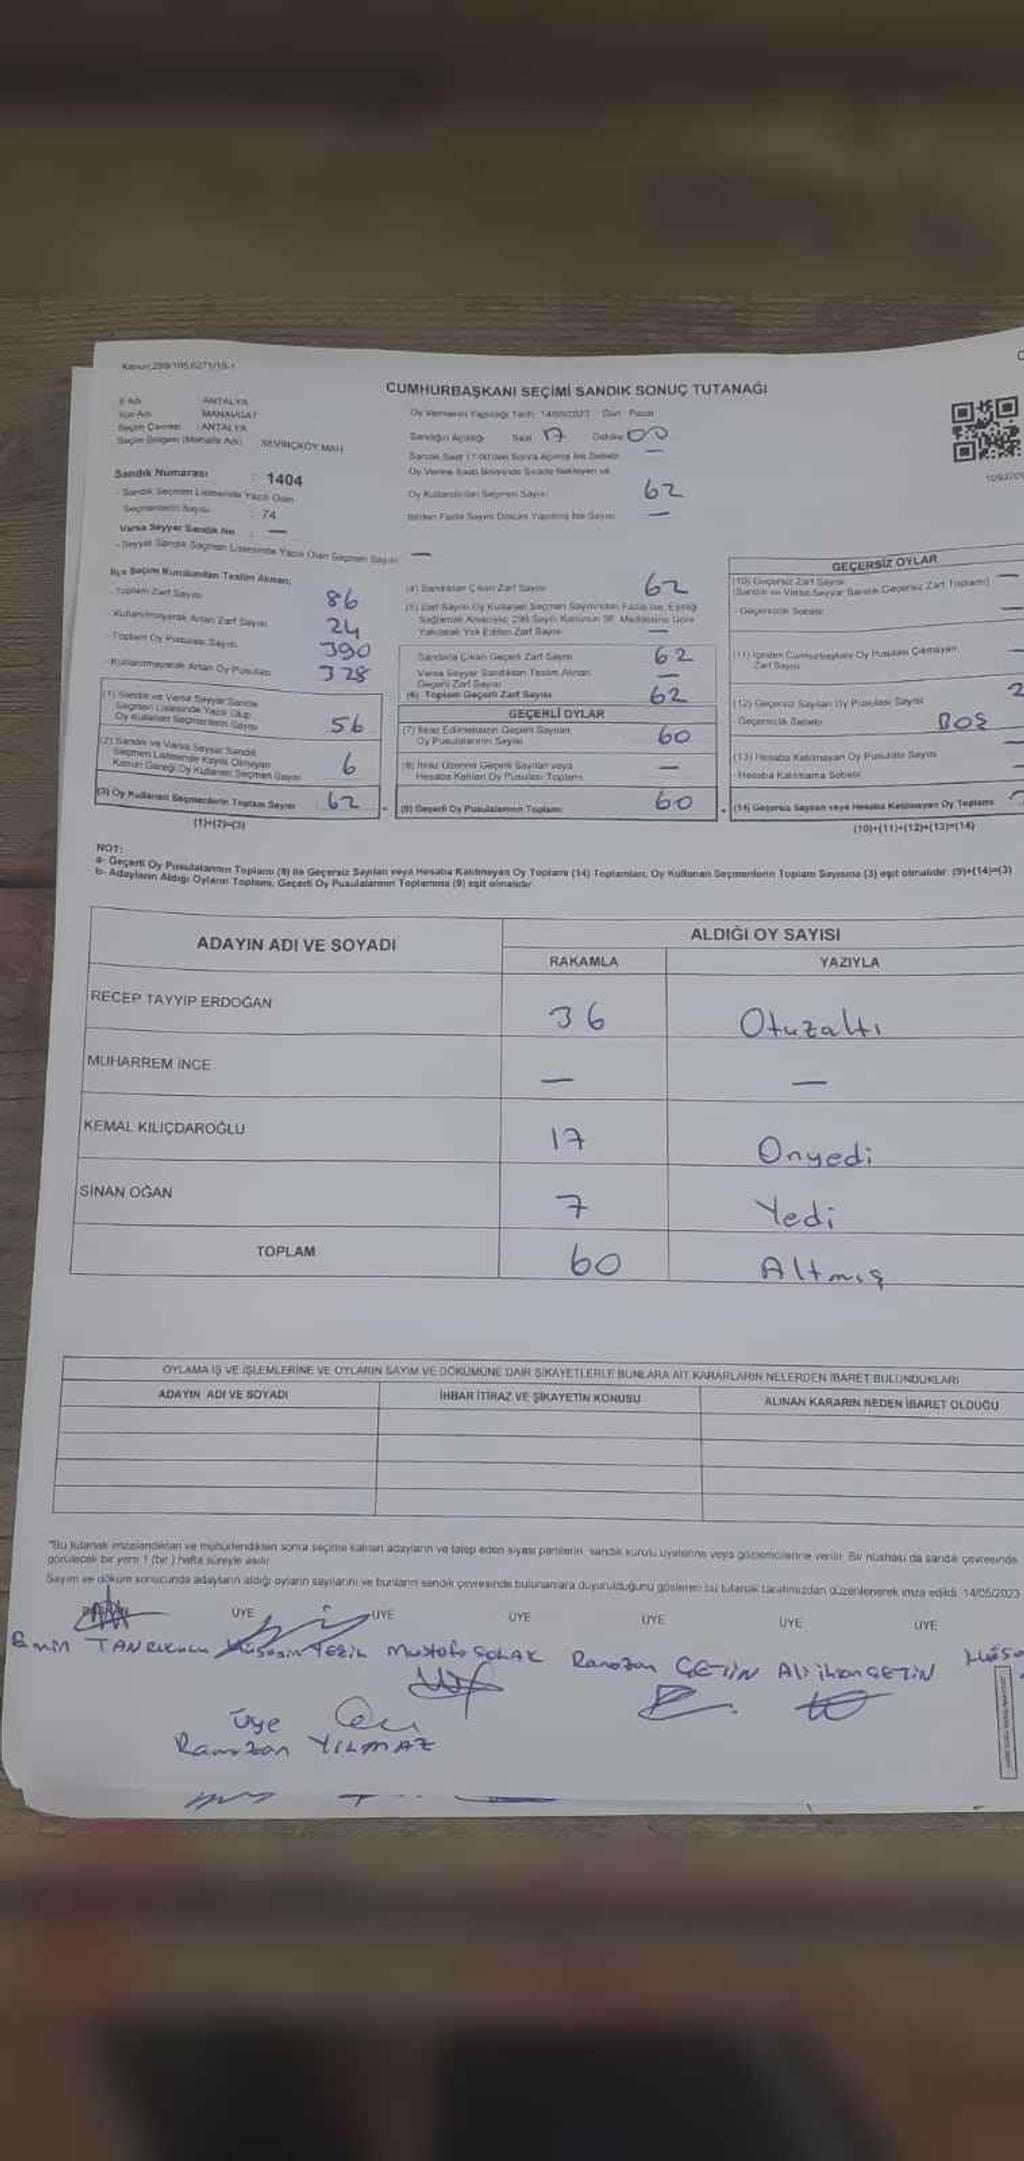 Kanun:298/105,6271/19-1
CUMHURBAŞKANI SEÇİMİ SANDIK SONUÇ TUTANAĞI
İl Adı : ANTALYA
İlçe Adı : MANAVGAT
Seçim Çevresi : ANTALYA
Seçim Bölgesi (Mahalle Adı) : SEVİNÇKÖY MAH.
Oy Vermenin Yapıldığı Tarih: 14/05/2023 Gün: Pazar
Sandığın Açıldığı Saat 17 Dakika 00
Sandık Saat 17.00'den Sonra Açılmış İse Sebebi —
Oy Verme Saati Bitiminde Sırada Bekleyen ve
Oy Kullandırılan Seçmen Sayısı 62
Birden Fazla Sayım Döküm Yapılmış İse Sayısı —
Sandık Numarası : 1404
- Sandık Seçmen Listesinde Yazılı Olan
Seçmenlerin Sayısı : 74
Varsa Seyyar Sandık No : —
- Seyyar Sandık Seçmen Listesinde Yazılı Olan Seçmen Sayısı —
İlçe Seçim Kurulundan Teslim Alınan;
- Toplam Zarf Sayısı 86
- Kullanılmayarak Artan Zarf Sayısı 24
- Toplam Oy Pusulası Sayısı 390
- Kullanılmayarak Artan Oy Pusulası 328
(1) Sandık ve Varsa Seyyar Sandık
Seçmen Listesinde Yazılı Olup
Oy Kullanan Seçmenlerin Sayısı 56
(2) Sandık ve Varsa Seyyar Sandık
Seçmen Listesinde Kayıtlı Olmayan
Kanun Gereği Oy Kullanan Seçmen Sayısı 6
(3) Oy Kullanan Seçmenlerin Toplam Sayısı 62
(1)+(2)=(3)
(4) Sandıktan Çıkan Zarf Sayısı 62
(5) Zarf Sayısı Oy Kullanan Seçmen Sayısından Fazla ise, Eşitliği
Sağlamak Amacıyla, 298 Sayılı Kanunun 98. Maddesine Göre
Yakılarak Yok Edilen Zarf Sayısı —
Sandıkta Çıkan Geçerli Zarf Sayısı 62
Varsa Seyyar Sandıktan Teslim Alınan
Geçerli Zarf Sayısı —
(6) Toplam Geçerli Zarf Sayısı 62
GEÇERLİ OYLAR
(7) İtiraz Edilmeksizin Geçerli Sayılan
Oy Pusulalarının Sayısı 60
(8) İtiraz Üzerine Geçerli Sayılan veya
Hesaba Katılan Oy Pusulası Toplamı —
(9) Geçerli Oy Pusulalarının Toplamı 60
GEÇERSİZ OYLAR
(10) Geçersiz Zarf Sayısı
(Sandık ve Varsa Seyyar Sandık Geçersiz Zarf Toplamı) —
- Geçersizlik Sebebi —
(11) İçinden Cumhurbaşkanı Oy Pusulası Çıkmayan
Zarf Sayısı —
(12) Geçersiz Sayılan Oy Pusulası Sayısı 2
- Geçersizlik Sebebi BOŞ
(13) Hesaba Katılmayan Oy Pusulası Sayısı
- Hesaba Katılmama Sebebi
(14) Geçersiz Sayılan veya Hesaba Katılmayan Oy Toplamı
(10)+(11)+(12)+(13)=(14)
NOT:
a- Geçerli Oy Pusulalarının Toplamı (9) ile Geçersiz Sayılan veya Hesaba Katılmayan Oy Toplamı (14) Toplamları, Oy Kullanan Seçmenlerin Toplam Sayısına (3) eşit olmalıdır. (9)+(14)=(3)
b- Adayların Aldığı Oyların Toplamı, Geçerli Oy Pusulalarının Toplamına (9) eşit olmalıdır
ADAYIN ADI VE SOYADI
ALDIĞI OY SAYISI
RAKAMLA YAZIYLA
RECEP TAYYİP ERDOĞAN 36 Otuzaltı
MUHARREM İNCE — —
KEMAL KILIÇDAROĞLU 17 Onyedi
SİNAN OĞAN 7 Yedi
TOPLAM 60 Altmış
OYLAMA İŞ VE İŞLEMLERİNE VE OYLARIN SAYIM VE DÖKÜMÜNE DAİR ŞİKAYETLERLE BUNLARA AİT KARARLARIN NELERDEN İBARET BULUNDUKLARI
ADAYIN ADI VE SOYADI İHBAR İTİRAZ VE ŞİKAYETİN KONUSU ALINAN KARARIN NEDEN İBARET OLDUĞU
"Bu tutanak imzalandıktan ve mühürlendikten sonra seçime katılan adayların ve talep eden siyasi partilerin sandık kurulu üyelerine veya gözlemcilerine verilir. Bir nüshası da sandık çevresinde
görülecek bir yere 1 (bir) hafta süreyle asılır
Sayım ve döküm sonucunda adayların aldığı oyların sayılarını ve bunların sandık çevresinde bulunanlara duyurulduğunu gösteren bu tutanak tarafımızdan düzenlenerek imza edildi. 14/05/2023
ÜYE ÜYE ÜYE ÜYE ÜYE ÜYE
Emin Hüseyin Mustafa SOLAK Ramazan ÇETİN Ali İhsan ÇETİN
Üye
Ramazan YILMAZ